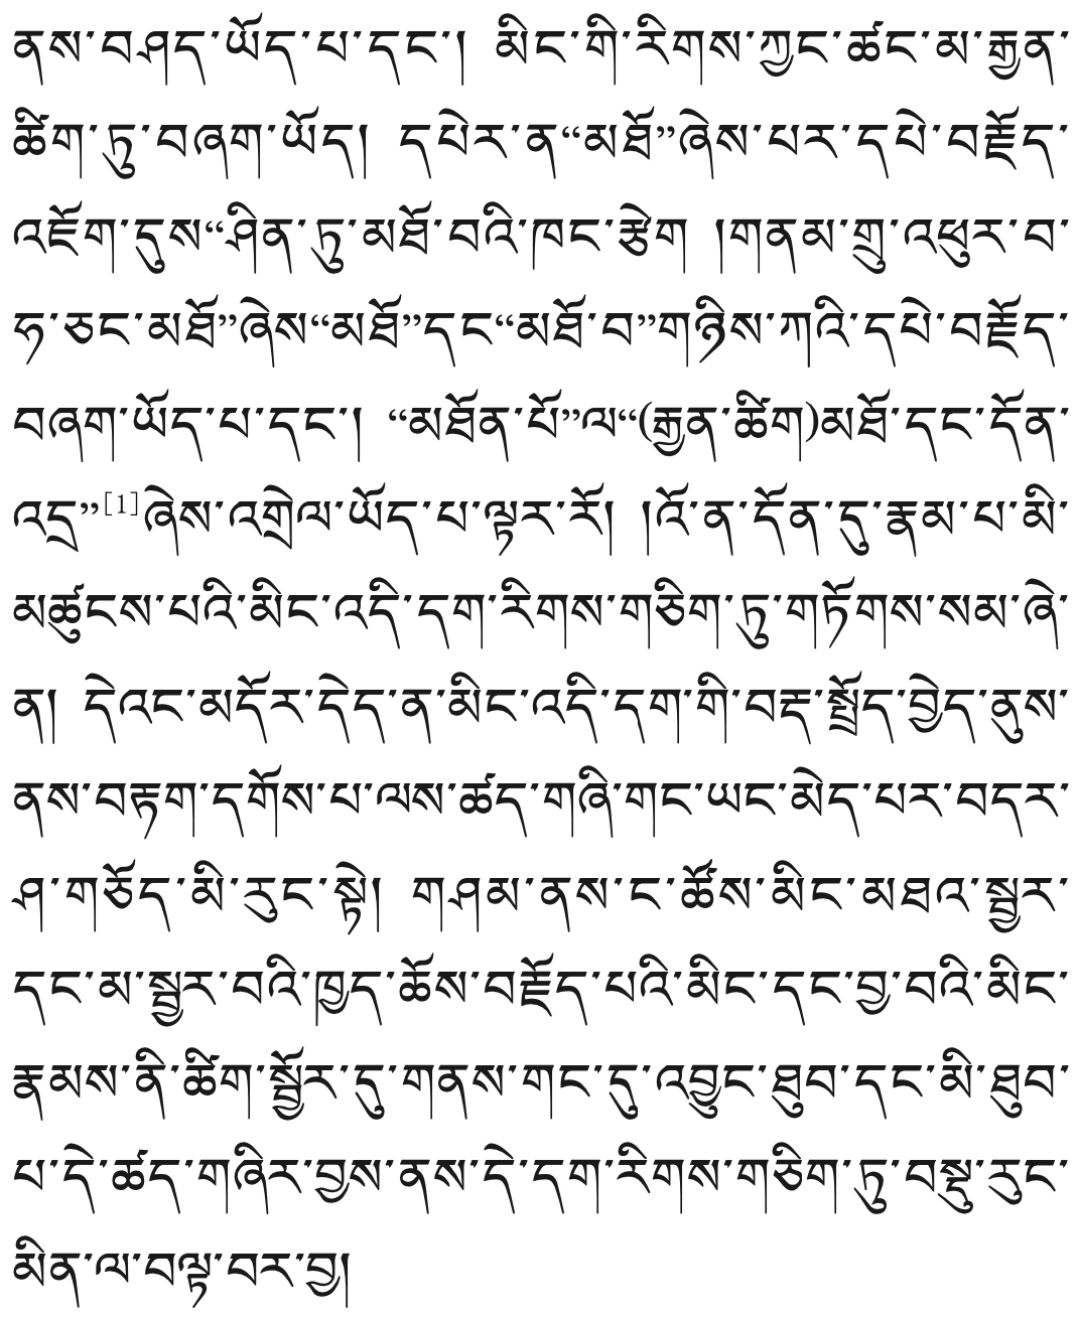 ནས་བཤད་ཡོད་པ་དང་། མིང་གི་རིགས་ཀྱང་ཚང་མ་རྒྱན་
ཚིག་ཏུ་བཞག་ཡོད། དཔེར་ན“མཐོ”ཞེས་པར་དཔེ་བརྗོད་
འཇོག་དུས“ཤིན་ཏུ་མཐོ་བའི་ཁང་རྩེག །གནམ་གྲུ་འཕུར་བ་
ཧ་ཅང་མཐོ”ཞེས“མཐོ”དང“མཐོ་བ”གཉིས་ཀའི་དཔེ་བརྗོད་
བཞག་ཡོད་པ་དང་། “མཐོན་པོ”ལ“(རྒྱན་ཚིག)མཐོ་དང་དོན་
འདྲ”[1]ཞེས་འགྲེལ་ཡོད་པ་ལྟར་རོ། །འོ་ན་དོན་དུ་རྣམ་པ་མི་
མཚུངས་པའི་མིང་འདི་དག་རིགས་གཅིག་ཏུ་གཏོགས་སམ་ཞེ་
ན། དེའང་མདོར་དེད་ན་མིང་འདི་དག་གི་བརྡ་སྤྲོད་བྱེད་ནུས་
ནས་བརྟག་དགོས་པ་ལས་ཚད་གཞི་གང་ཡང་མེད་པར་བདར་
ཤ་གཅོད་མི་རུང་སྟེ། གཤམ་ནས་ང་ཚོས་མིང་མཐའ་སྦྱར་
དང་མ་སྦྱར་བའི་ཁྱད་ཆོས་བརྗོད་པའི་མིང་དང་བྱ་བའི་མིང་
རྣམས་ནི་ཚིག་སྦྱོར་དུ་གནས་གང་དུ་འབྱུང་ཐུབ་དང་མི་ཐུབ་
པ་དེ་ཚད་གཞིར་བྱས་ནས་དེ་དག་རིགས་གཅིག་ཏུ་བསྡུ་རུང་
མིན་ལ་བལྟ་བར་བྱ།